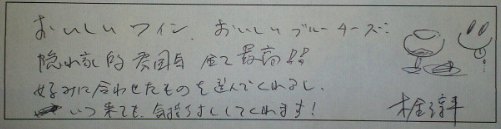 おいしいワイン、おいしいブルーチーズ!!
隠れ家的雰囲気 全て最高!!
好みに合わせたものを選んでくれるし、
いつ来ても、気持ちよくしてくれます!